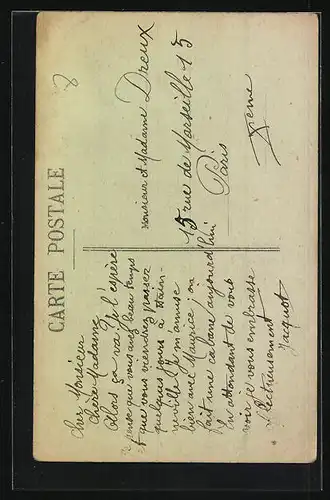 CARTE POSTALE
Cher Monsieur
Chère Madame,
Alors ça va? Je l'espère
je pense que vous avez beau temps
et que vous viendrez passez
quelques jours à Hain-
neville. Je m'amuse
bien avec Maurice; j'ai
fait une cabane aujourd'hui
En attendant de vous
voir je vous embrasse
affectueusement
Jacquot
Monsieur et Madame Dreux
15 rue de Marseille 15
Paris
Xeme